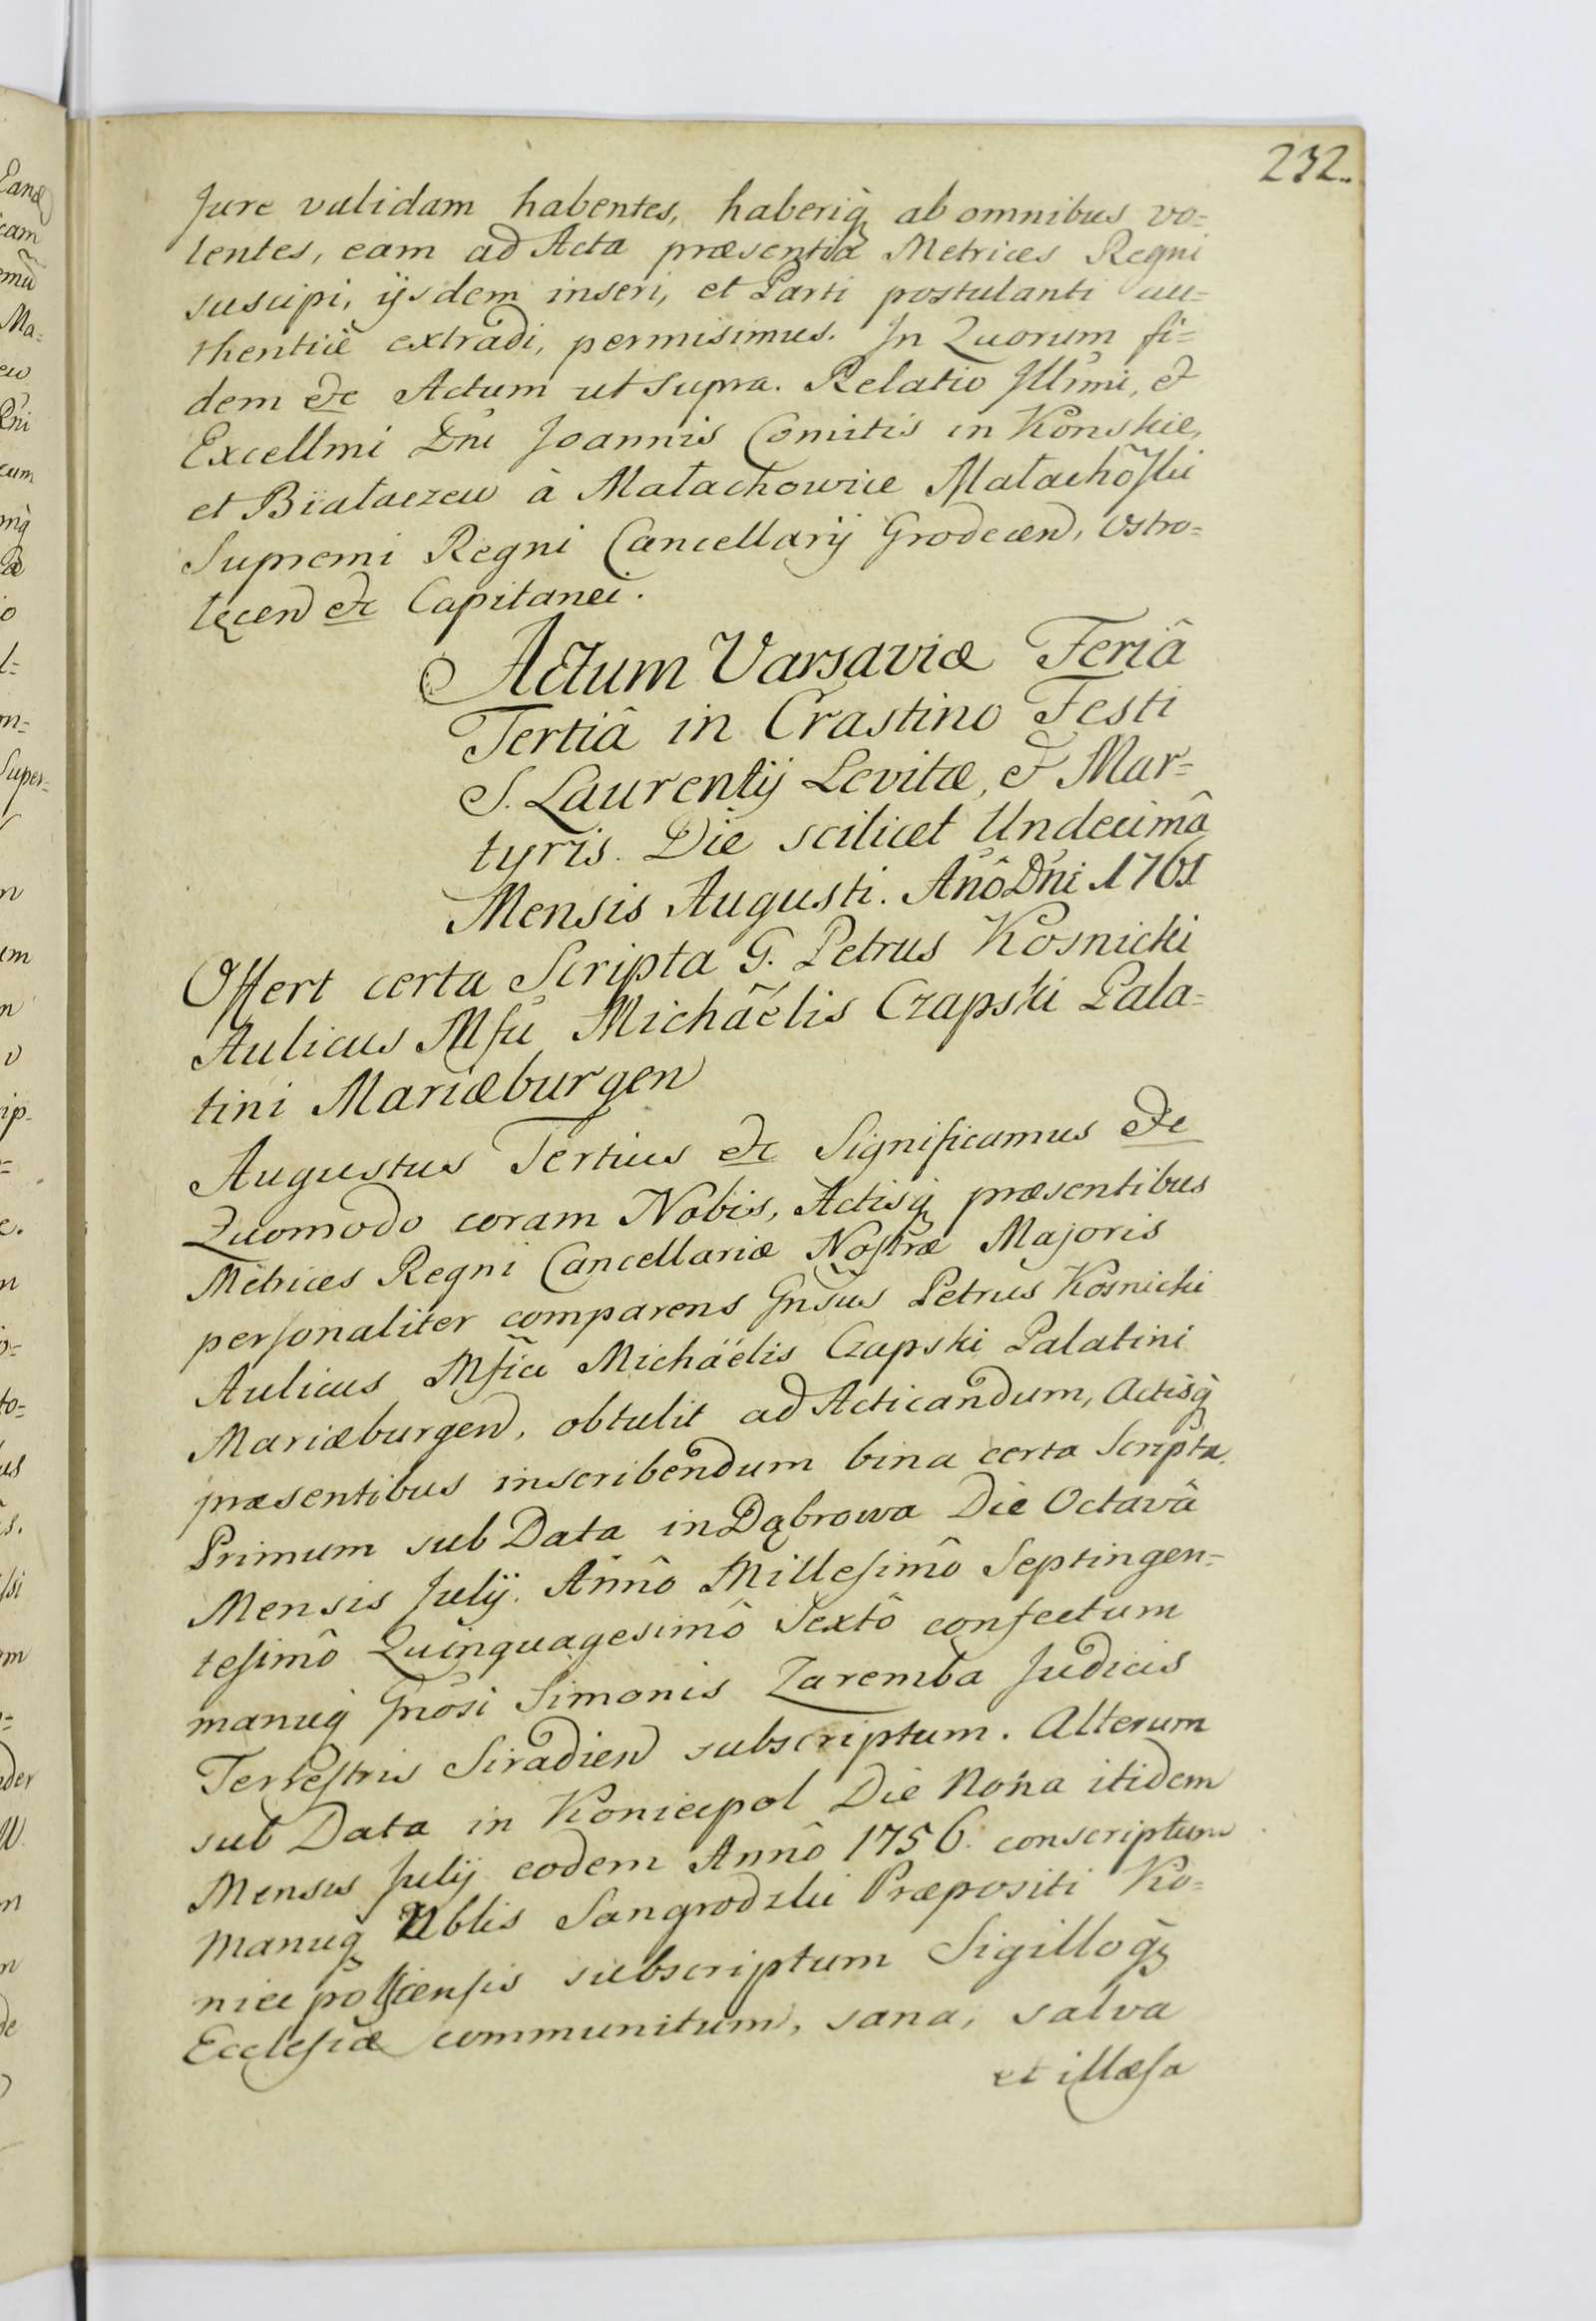 232.
Jure validam habentes, haberiq̃ ab omnibus vo=
lentes, eam ad Acta præsentia Metrices Regni
suscipi, ijsdem inseri, et Parti postulanti au=
thenticè extradi, permisimus. In Quorum fi=
dem &c Actum ut supra. Relatio Illm̃i, &
Excellmi Dn̄i Joannis Comitis in Konskie,
et Białaczew à Małachowice Małachõski
Supremi Regni Cancellarij Grodecen, Ostro=
łęcen &c Capitanei.
Actum Varsaviæ Feriâ
Tertiâ in Crastino Festi
S. Laurentij Levitæ, & Mar=
tyris. Die scilicet Undecimâ
Mensis Augusti. Añô Dñi 1761
Offert certa Scripta G. Petrus Kosnicki
Aulicus Mfci Michaëlis Czapski Pala=
tini Mariæburgen
Augustus Tertius &c Significamus &c
Quomodo coram Nobis, Actisq̃ præsentibus
Metrices Regni Cancellariæ Nostræ Majoris
personaliter comparens Gnsũs Petrus Kosnicki
Aulicus Mf̃ici Michaëlis Czapski Palatini
Mariæburgen, obtulit ad Acticandum, Actisq̃
præsentibus inscribendum bina certa Scripta.
Primum sub Data in Dąbrowa Die Octavâ
Mensis Julij. Annô Millesimô Septingen=
tesimô Quinquagesimô Sextô confectum
manuq̃ Gnõsi Simonis Zaremba Judicis
Terrestris Siradien subscriptum. Alterum
sub Data in Koniecpol Die Nona itidem
Mensis Julij eodem Annô 1756. conscriptum
manuq̃ Nblis Sangrodzki Præpositi Ko=
niecpolsciensis subscriptum Sigilloq̃
Ecclesiæ communitum, sana, salva
et illæsa